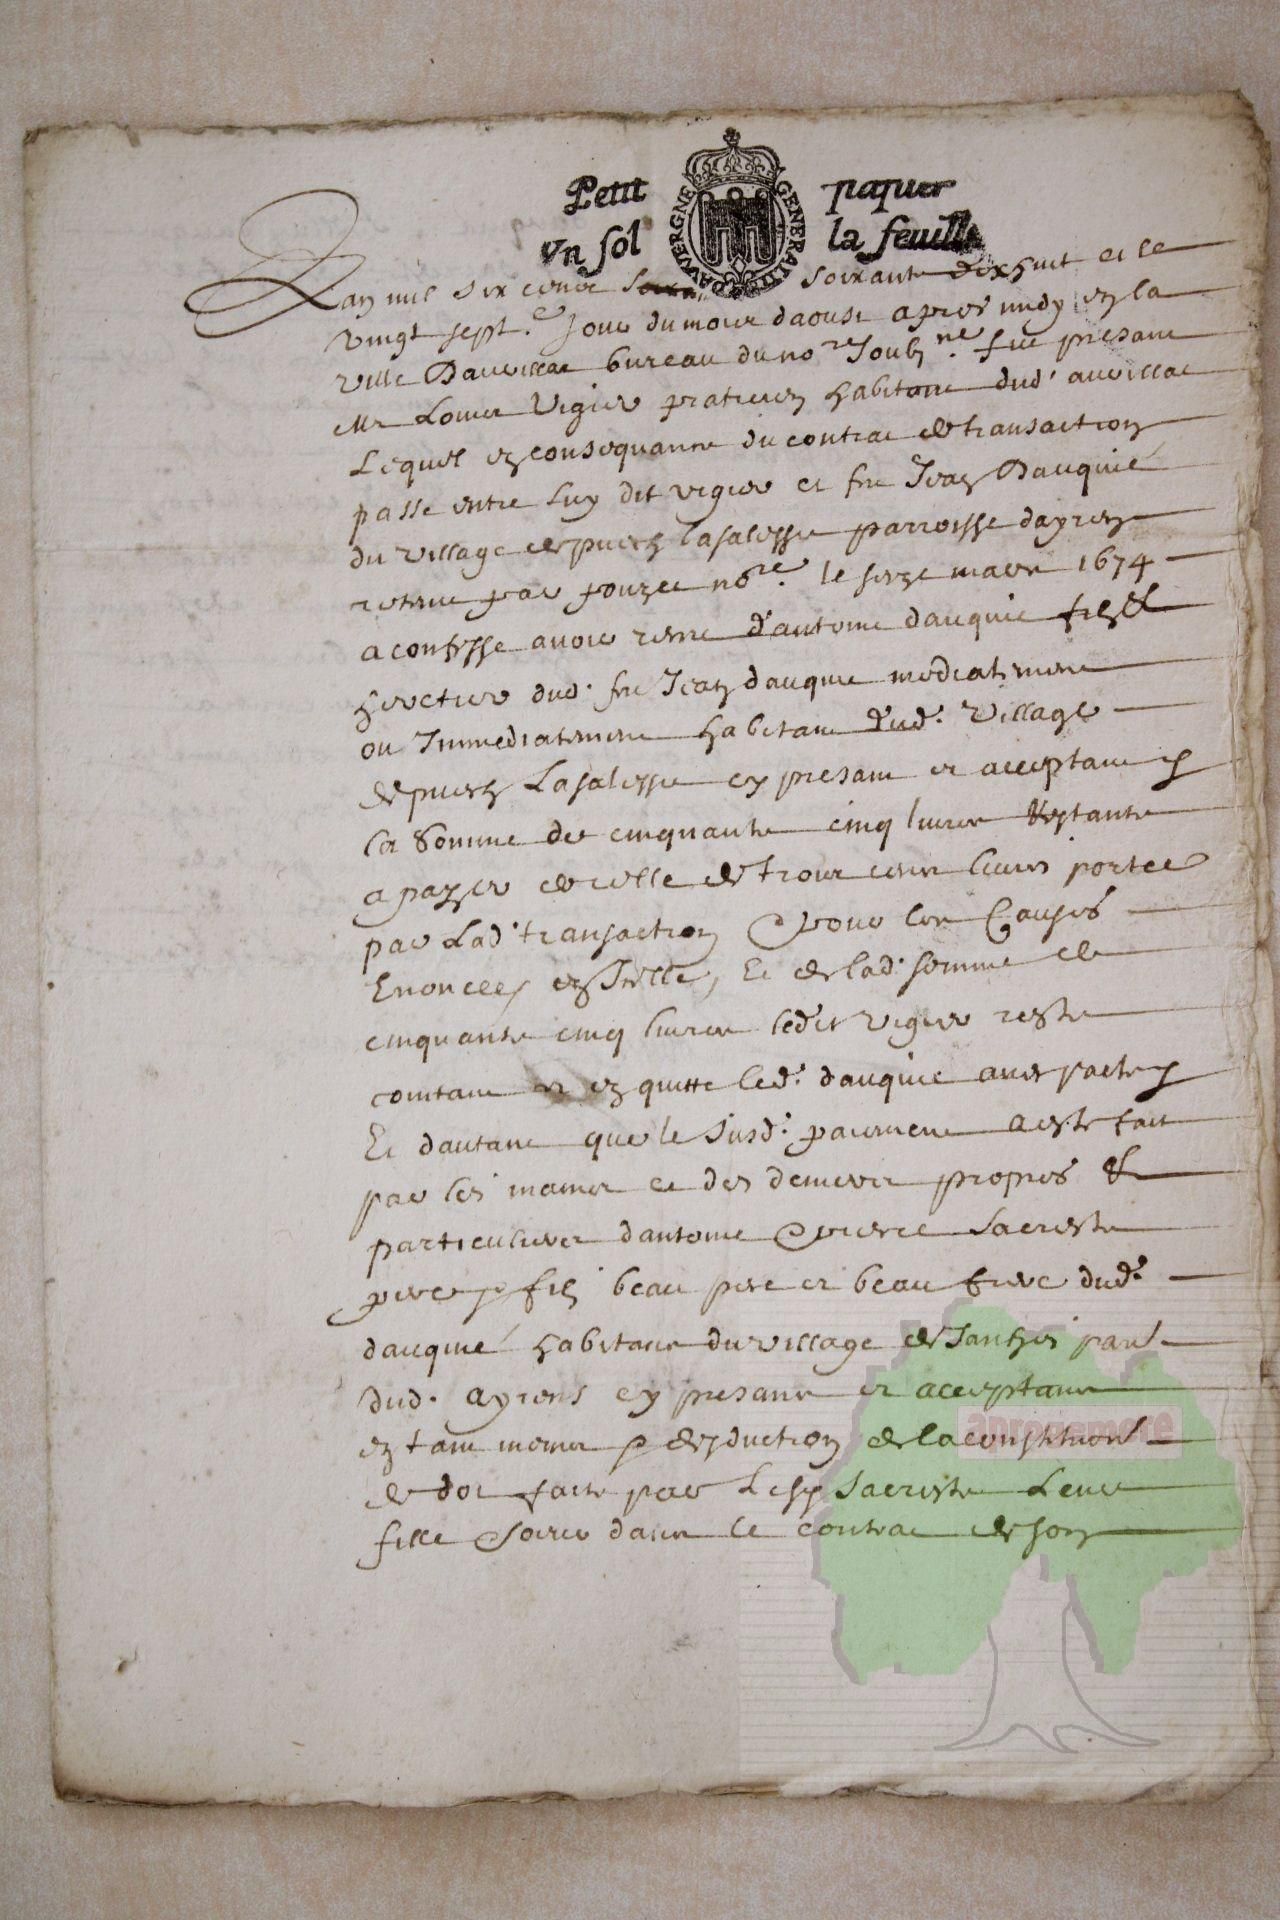 Petit papier
Vn sol la feuille
D'AUVERGNE GENERALITE
Lan mil six cens soixante dixhuit et le
vingt sept.e Jour du mois daoust apres midy en la
ville Daurillac bureau du no.re soubz.ne feu presant
Mr Louis Vigier praticien habitant dud. aurillac
Lequel en consequance du contrac de transaction
passe entre luy dit vigier et feu Jean Dauquié
du village de puech lasalesse parroisse dayrens
retenue par no.re le seze mars 1674
a confesse avoir receu d'antoine dauquie filz &
heretier dud. feu Jean dauquie mediatemene
ou Immediatemene habitant dud. village
de puech Lasalesse cy presant et acceptant
la somme de cinquante cinq livres restante
a payer de celle de trois cens livres portee
par Lad. transaction pour les Causes
Enoncees en Icelle, Et de lad. somme de
cinquante cinq livres ledit vigier reste
contant et en quitte led. dauquie avec pacte
Et dautant que le susd. paiemene a este fait
par les mains et des deniers propres &
particuliers dantoine pierre sacreste
pere & filz beau pere et beau frere dud.
dauquié habitans du village de Janhes par.
dud. ayrens cy presans et acceptans
en tant moins deduction de la constitution
de dot faite par Lesd. sacreste Leur
fille soeur dans le contrac de son
aprogemere